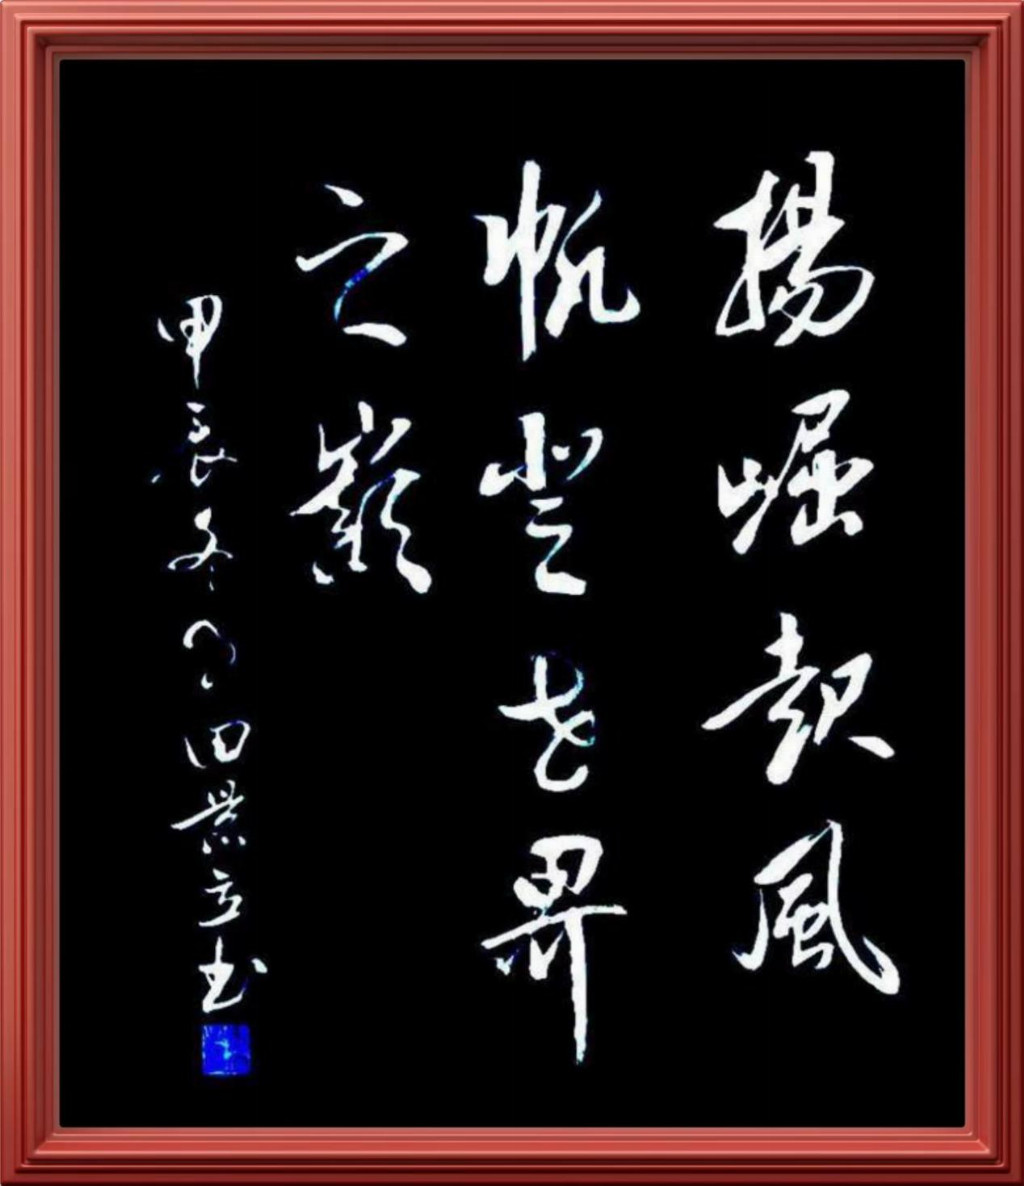 揚崛起風
帆登世界
之巔
甲辰冬月田景立书